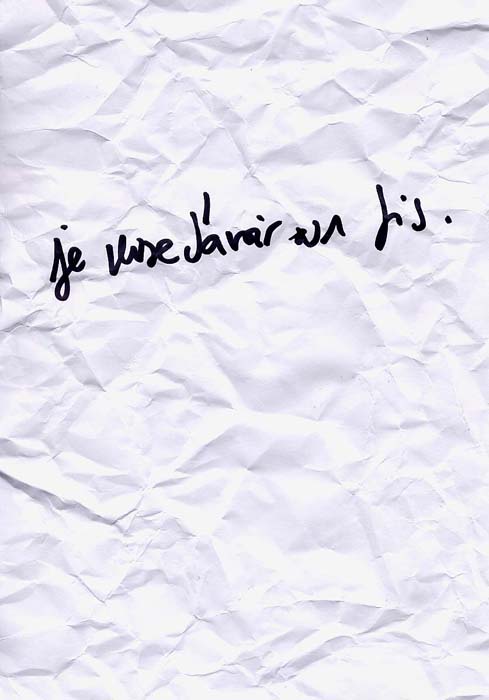 je ruse d'avoir un fils.